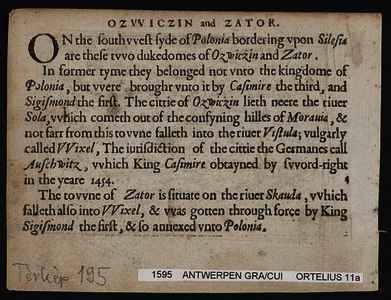 OZVVICZIN and ZATOR.
ON the southvvest syde of Polonia bordering vpon Silesia
are these tvvo dukedomes of Ozwiczin and Zator.
In former tyme they belonged not vnto the kingdome of
Polonia, but vvere brought vnto it by Casimire the third, and
Sigismond the first. The cittie of Ozwiczin lieth neere the riuer
Sola, vvhich cometh out of the confyning hilles of Morauia, &
not farr from this tovvne falleth into the riuer Vistula; vulgarly
called VVixel, The iurisdiction of the cittie the Germanes call
Auschwitz, vvhich King Casimire obtayned by svvord-right
in the yeare 1454.
The tovvne of Zator is situate on the riuer Skauda, vvhich
falleth also into VVixel, & vvas gotten through force by King
Sigismond the first, & so annexed vnto Polonia.
195
1595 ANTWERPEN GRA/CUI ORTELIUS 11a